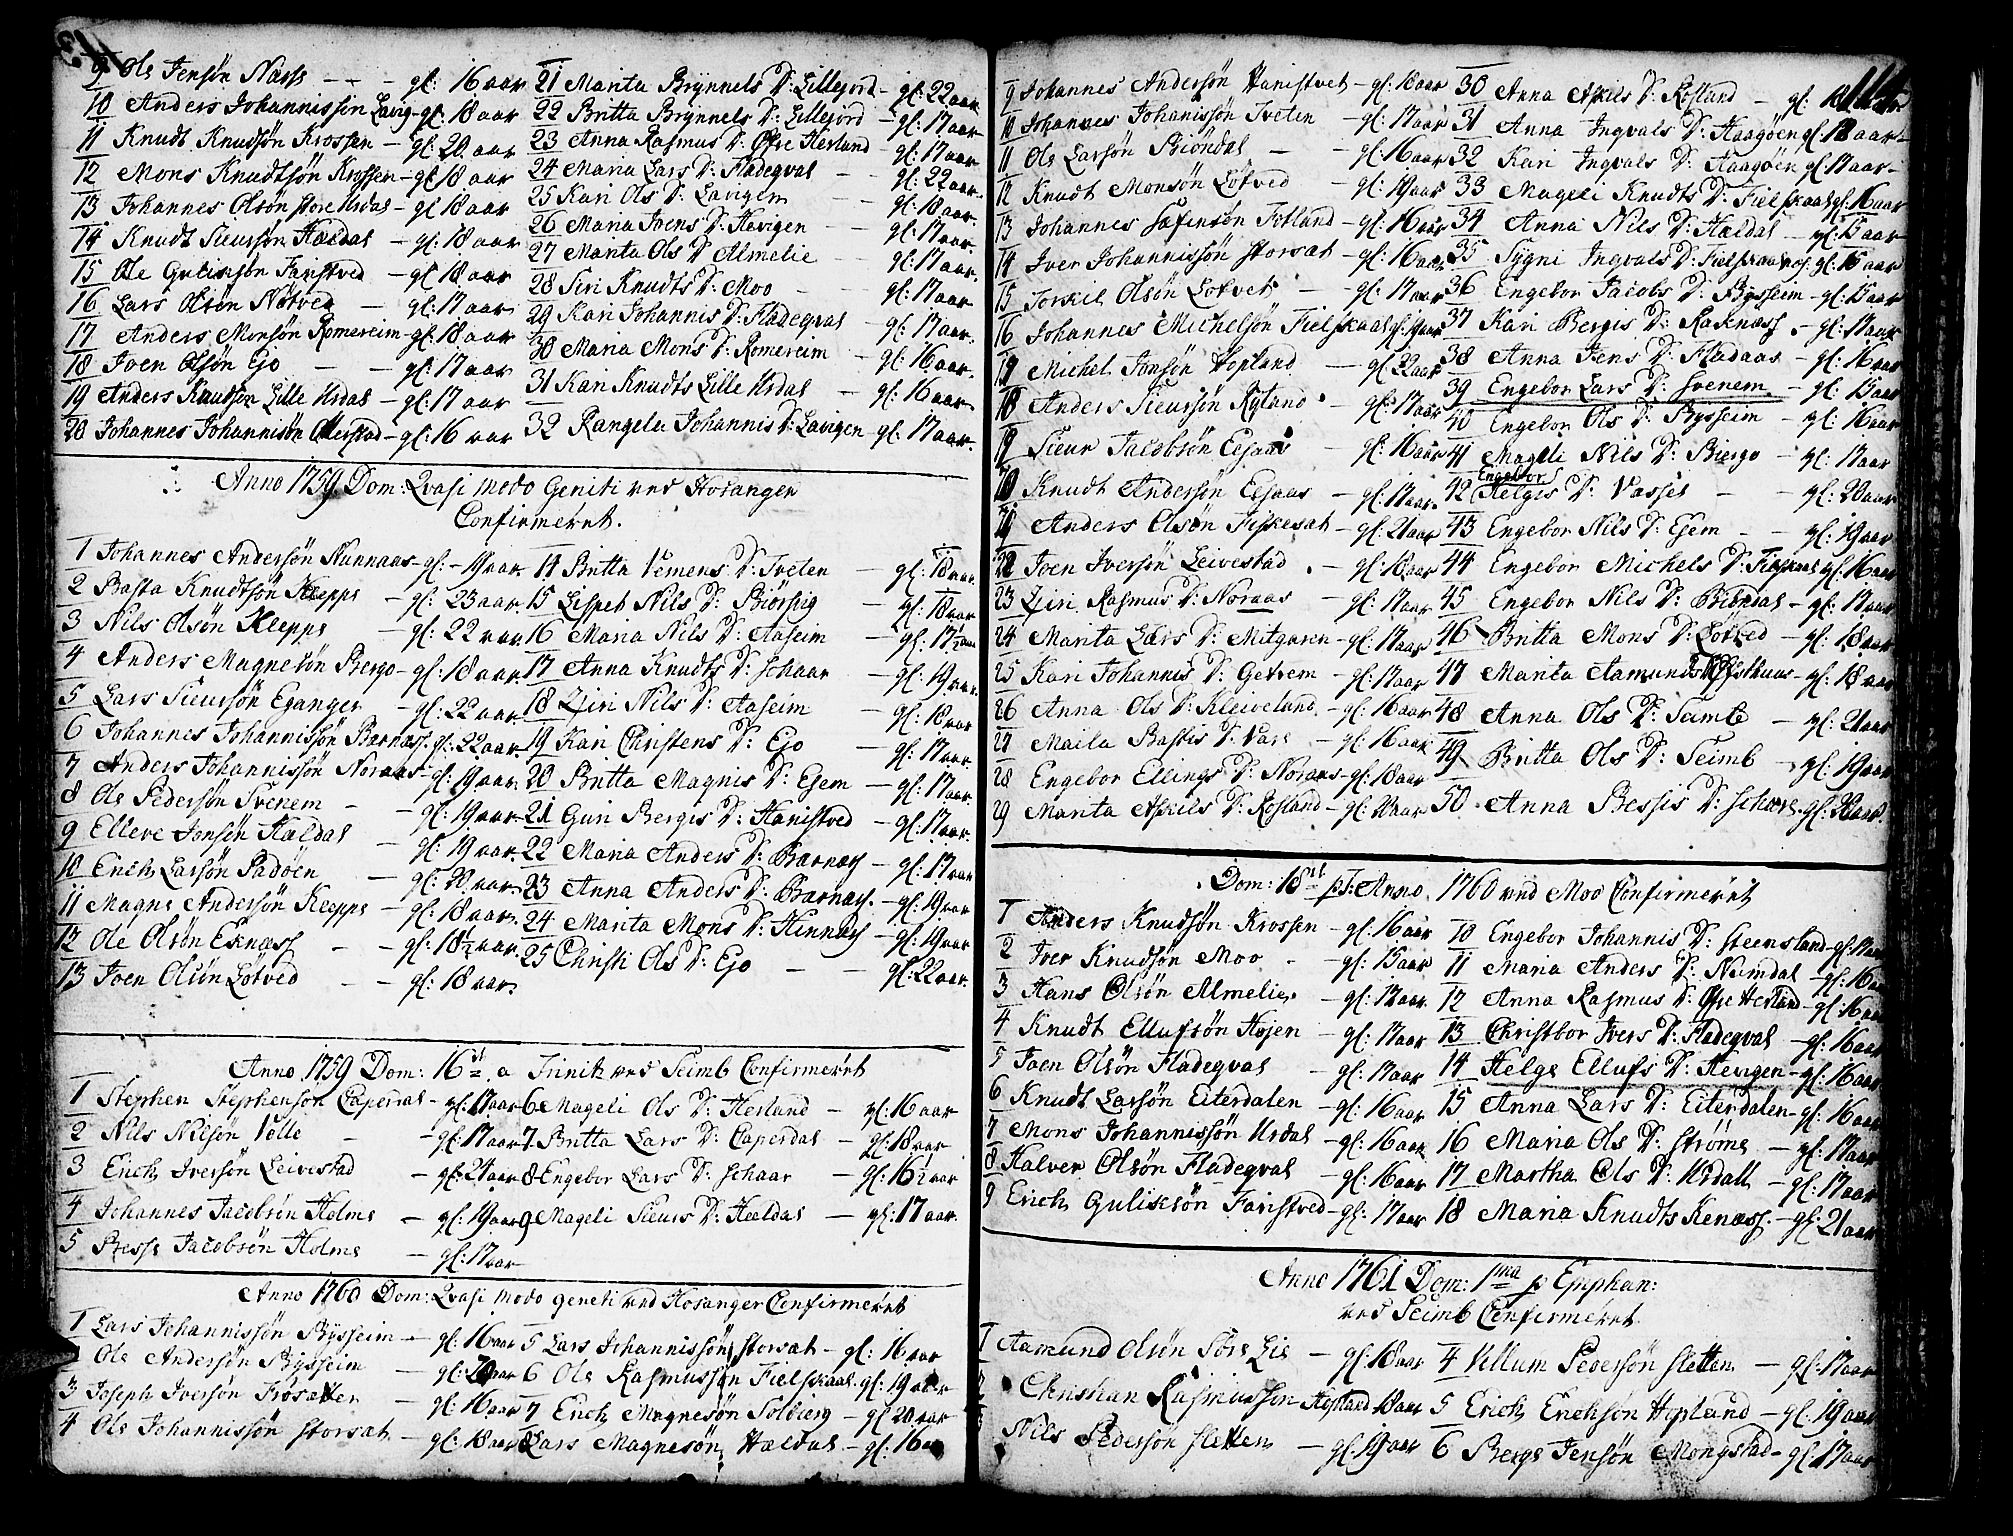 9 Ole Jensøn Næsse - - - gl: 16 aar
10 Anders Johannissøn Lavig - gl: 18 aar
11 Knudt Knudsøn Krossen - gl: 20 aar
12 Mons Knudtsøn Krossen - gl: 18 aar
13 Johannes Olsøn store Urdal - gl: 18 aar
14 Knudt Siursøn Hældal - gl: 18 aar
15 Ole Guliksøn Faristved - gl: 18 aar
16 Lars Olsøn Nøtved - gl: 17 aar
17 Anders Monsøn Romereim - gl: 18 aar
18 Joen Olsøn Ejo - - gl: 17 aar
19 Anders Knudsøn Lille Urdal - gl: 17 aar
20 Johannes Johannisøn - gl: 16 aar
21 Marita Brynnels D: Lillejord - gl: 22 aar
22 Britta Brynnels D: Lillejord - gl: 17 aar
23 Anna Rasmus D: Øfre Herland gl: 17 aar
24 Maria Lars D: Fladeqval - gl: 22 aar
25 Kari Ols D: Lavigen - gl: 18 aar
26 Maria Joens D: Hevigen - gl: 17 aar
27 Marita Ols D: Almelie - gl: 17 aar
28 Siri Knudts D: Moo - gl: 17 aar
29 Kari Johannis D: Fladeqval - gl: 17 aar
30 Maria Mons D: Romereim - gl: 16 aar
31 Kari Knudts Lille Urdal - gl: 16 aar
32 Rangela Johannis D: Lavigen gl: 17 aar
Anno 1759 Dom: Qvasi modo Geniti ved Hosanger
Confirmeret.
1 Johannes Andersøn Nunnaas - gl: - 19 aar
2 Basta Knudtsøn Kleppe - gl: 23 aar
3 Nils Olsøn Kleppe - gl: 22 aar
4 Anders Magnesøn Bergo - gl: 18 aar
5 Lars Siursøn Eganger - gl: 22 aar
6 Johannes Johannissøn Barnæss. gl: 22 aar
7 Anders Johannissøn Noraas - gl: 19 aar
8 Ole Pedersøn Svenem - gl: 19 aar
9 Elleve Jonsøn Hældal - gl: 19 aar
10 Erich Larsøn Padøen - gl: 20 aar
11 Magne Andersøn Kleppe - gl: 18 aar
12 Ole Olsøn Eknæss - - gl: 18½ aar
13 Joen Olsøn Løtved - - gl: 18 aar
14 Britta Vemens D: Tveten - gl: 18 aar
15 Lispet Nils D: Biørsvig - gl: 18 aar
16 Maria Nils D: Aaseim - gl: 17½ aar
17 Anna Knudts D: Schaar - gl: 19 aar
18 Ziri Nils D: Aaseim - gl: 18 aar
19 Kari Christens D: Ejo - gl: 17 aar
20 Britta Magnis D: Ejem - gl: 17 aar
21 Guri Bergis D: Haristved - gl: 17 aar
22 Maria Anders D: Barnæss - gl: 17 aar
23 Anna Anders D: Barnæss - gl: 19 aar
24 Marita Mons D: Hinnæss - gl: 19 aar
25 Christi Ols D: Ejo - - gl: 22 aar
Anno 1759 Dom: 16 a Trinit ved Seimb Confirmeret
1 Stephen Stephensøn Caperdal - gl: 17 aar
2 Nils Nilsøn Velle - gl: 17 aar
3 Erich Iversøn Leivestad - gl: 24 aar
4 Johannes Jacobsøn Holme - gl: 19 aar
5 Besse Jacobsøn Holme - gl: 17 aar
6 Mageli Ols D: Herland - gl: 16 aar
7 Britta Lars D: Caperdal - gl: 18 aar
8 Engebor Lars D: Schaar - gl: 16½ aar
9 Mageli Siurs D: Hældal - gl: 17 aar
Anno 1760 Dom: Qvasi modo geneti ved Hosanger Confirmeret
1 Lars Johannissøn Bysseim - gl: 16 aar
2 Ole Andersøn Bysseim - gl: 20 aar
3 Joseph Iversøn Frøsætter - gl: 16 aar
4 Ole Johannissøn Storsat - gl: 18 aar
5 Lars Johannissøn Storsat - gl: 16 aar
6 Ole Rasmussøn Fielskaal gl: 19 aar
7 Erich Magnesøn Solbierg - gl: 20 aar
8 Lars Magnesøn Hældal - gl: 16 aar
9 Johannes Andersøn Haristvet - gl: 18 aar
10 Johannes Johanisøn Tveten - gl: 17 aar
11 Ole Larsøn Biøndal - gl: 16 aar
12 Knudt Monsøn Løtved - gl: 19 aar
13 Johannes Fotland - gl: 16 aar
14 Iver Johannissøn Storsat - gl: 16 aar
15 Torkil Olsøn Løtvet - gl: 17 aar
16 Johannes Michelsøn Fielskaal gl: 19 aar
17 Michel Jonsøn Hopland - gl: 22 aar
18 Anders Siursøn Ryland - gl: 17 aar
19 Siur Jacobsøn Eljaas - gl: 16 aar
20 Knudt Andersøn Eljaas - gl: 17 aar
21 Anders Olsøn Fiskesat - gl: 21 aar
22 Joen Iversøn Leivestad - gl: 18 aar
23 Ziri Rasmus D: Noraas - gl: 17 aar
24 Marita Lars D: Mitgaren - gl: 17 aar
25 Kari Johannis D: Getrem - gl: 17 aar
26 Anna Ols D: Kleiveland - gl: 16 aar
27 Maila Bastis D: Vare - gl: 16 aar
28 Engebor Ellings D: Noraas - gl: 18 aar
29 Marita Askils D: Rosland - gl: 20 aar
30 Anna Askils D: Rosland - gl: 18 aar
31 Anna Ingvals D: Haagøen gl: 18 aar
32 Kari Ingvals D: Haagøen gl: 17 aar
33 Mageli Knudts D: Fielskaal gl: 16 aar
34 Anna Nils D: Hældal - gl: 15 aar
35 Sygni Ingvals D: Fielskaal gl: 16 aar
36 Engebor Jacobs D: Bysseim - gl: 15 aar
37 Kari Bergis D: Raknæss - gl: 17 aar
38 Anna Jens D: Fladaas - gl: 16 aar
39 Engebor Lars D: Svenem - gl: 15 aar
40 Engebor Ols D: Bysseim - gl: 16 aar
41 Mageli Nils D: Biergo - gl: 17 aar
Engebor
42 Helgis D: Vassel - gl: 20 aar
43 Engebor Nils D: Ejem - gl: 19 aar
44 Engebor Michels D: Fielskaal gl: 16 aar
45 Engebor Nils D: Biøndal - gl: 17 aar
46 Britta Mons D: Løtved - gl: 18 aar
47 Marita Aamunds D: - gl: 18 aar
48 Anna Ols D: Seimb - gl: 21 aar
49 Britta Ols D: Seimb - gl: 19 aar
50 Anna Bessis D: Schare gl: 20 aar
Dom: 18 p T: Anno 1760 ved Moo Confirmeret
1 Anders Knudsøn Krossen - gl: 16 aar
2 Iver Knudsøn Moo - gl: 15 aar
3 Hans Olsøn Almelie - gl: 17 aar
4 Knudt Ellufsøn Højen - gl: 17 aar
5 Joen Olsøn Fladeqval - gl: 17 aar
6 Knudt Larsøn Eiterdalen - gl: 16 aar
7 Mons Johannissøn Urdal - gl: 16 aar
8 Halver Olsøn Fladeqval - gl: 16 aar
9 Erich Guliksøn Faristved - gl: 17 aar
10 Engebor Johannis D: Steensland - gl: 17 aar
11 Maria Anders D: Numdal - gl: 16 aar
12 Anna Rasmus D: Øfre Herland - gl: 16 aar
13 Christbor Ivers D: Fladeqval - gl: 16 aar
14 Helge Ellufs D: Hevigen - gl: 16 aar
15 Anna Lars D: Eiterdalen - gl: 16 aar
16 Maria Ols D: Strøme - gl: 17 aar
17 Martha Ols D: Urdall - gl: 17 aar
18 Maria Knudts Kenæss. - gl: 21 aar
Anno 1761 Dom: 1ma p Epiphan:
ved Seimb Confirmeret.
1 Aamund Olsøn Søre Lie - gl: 18 aar
Christian Rasmussøn Hopland 18 aar
Nils Pedersøn Sletten - gl: 19 aar
4 Villum Pedersøn Sletten - gl: 17 aar
5 Erich Erichsøn Hopland - gl: 19 aar
6 Berge Jensøn Mongstad - gl: 17 aar